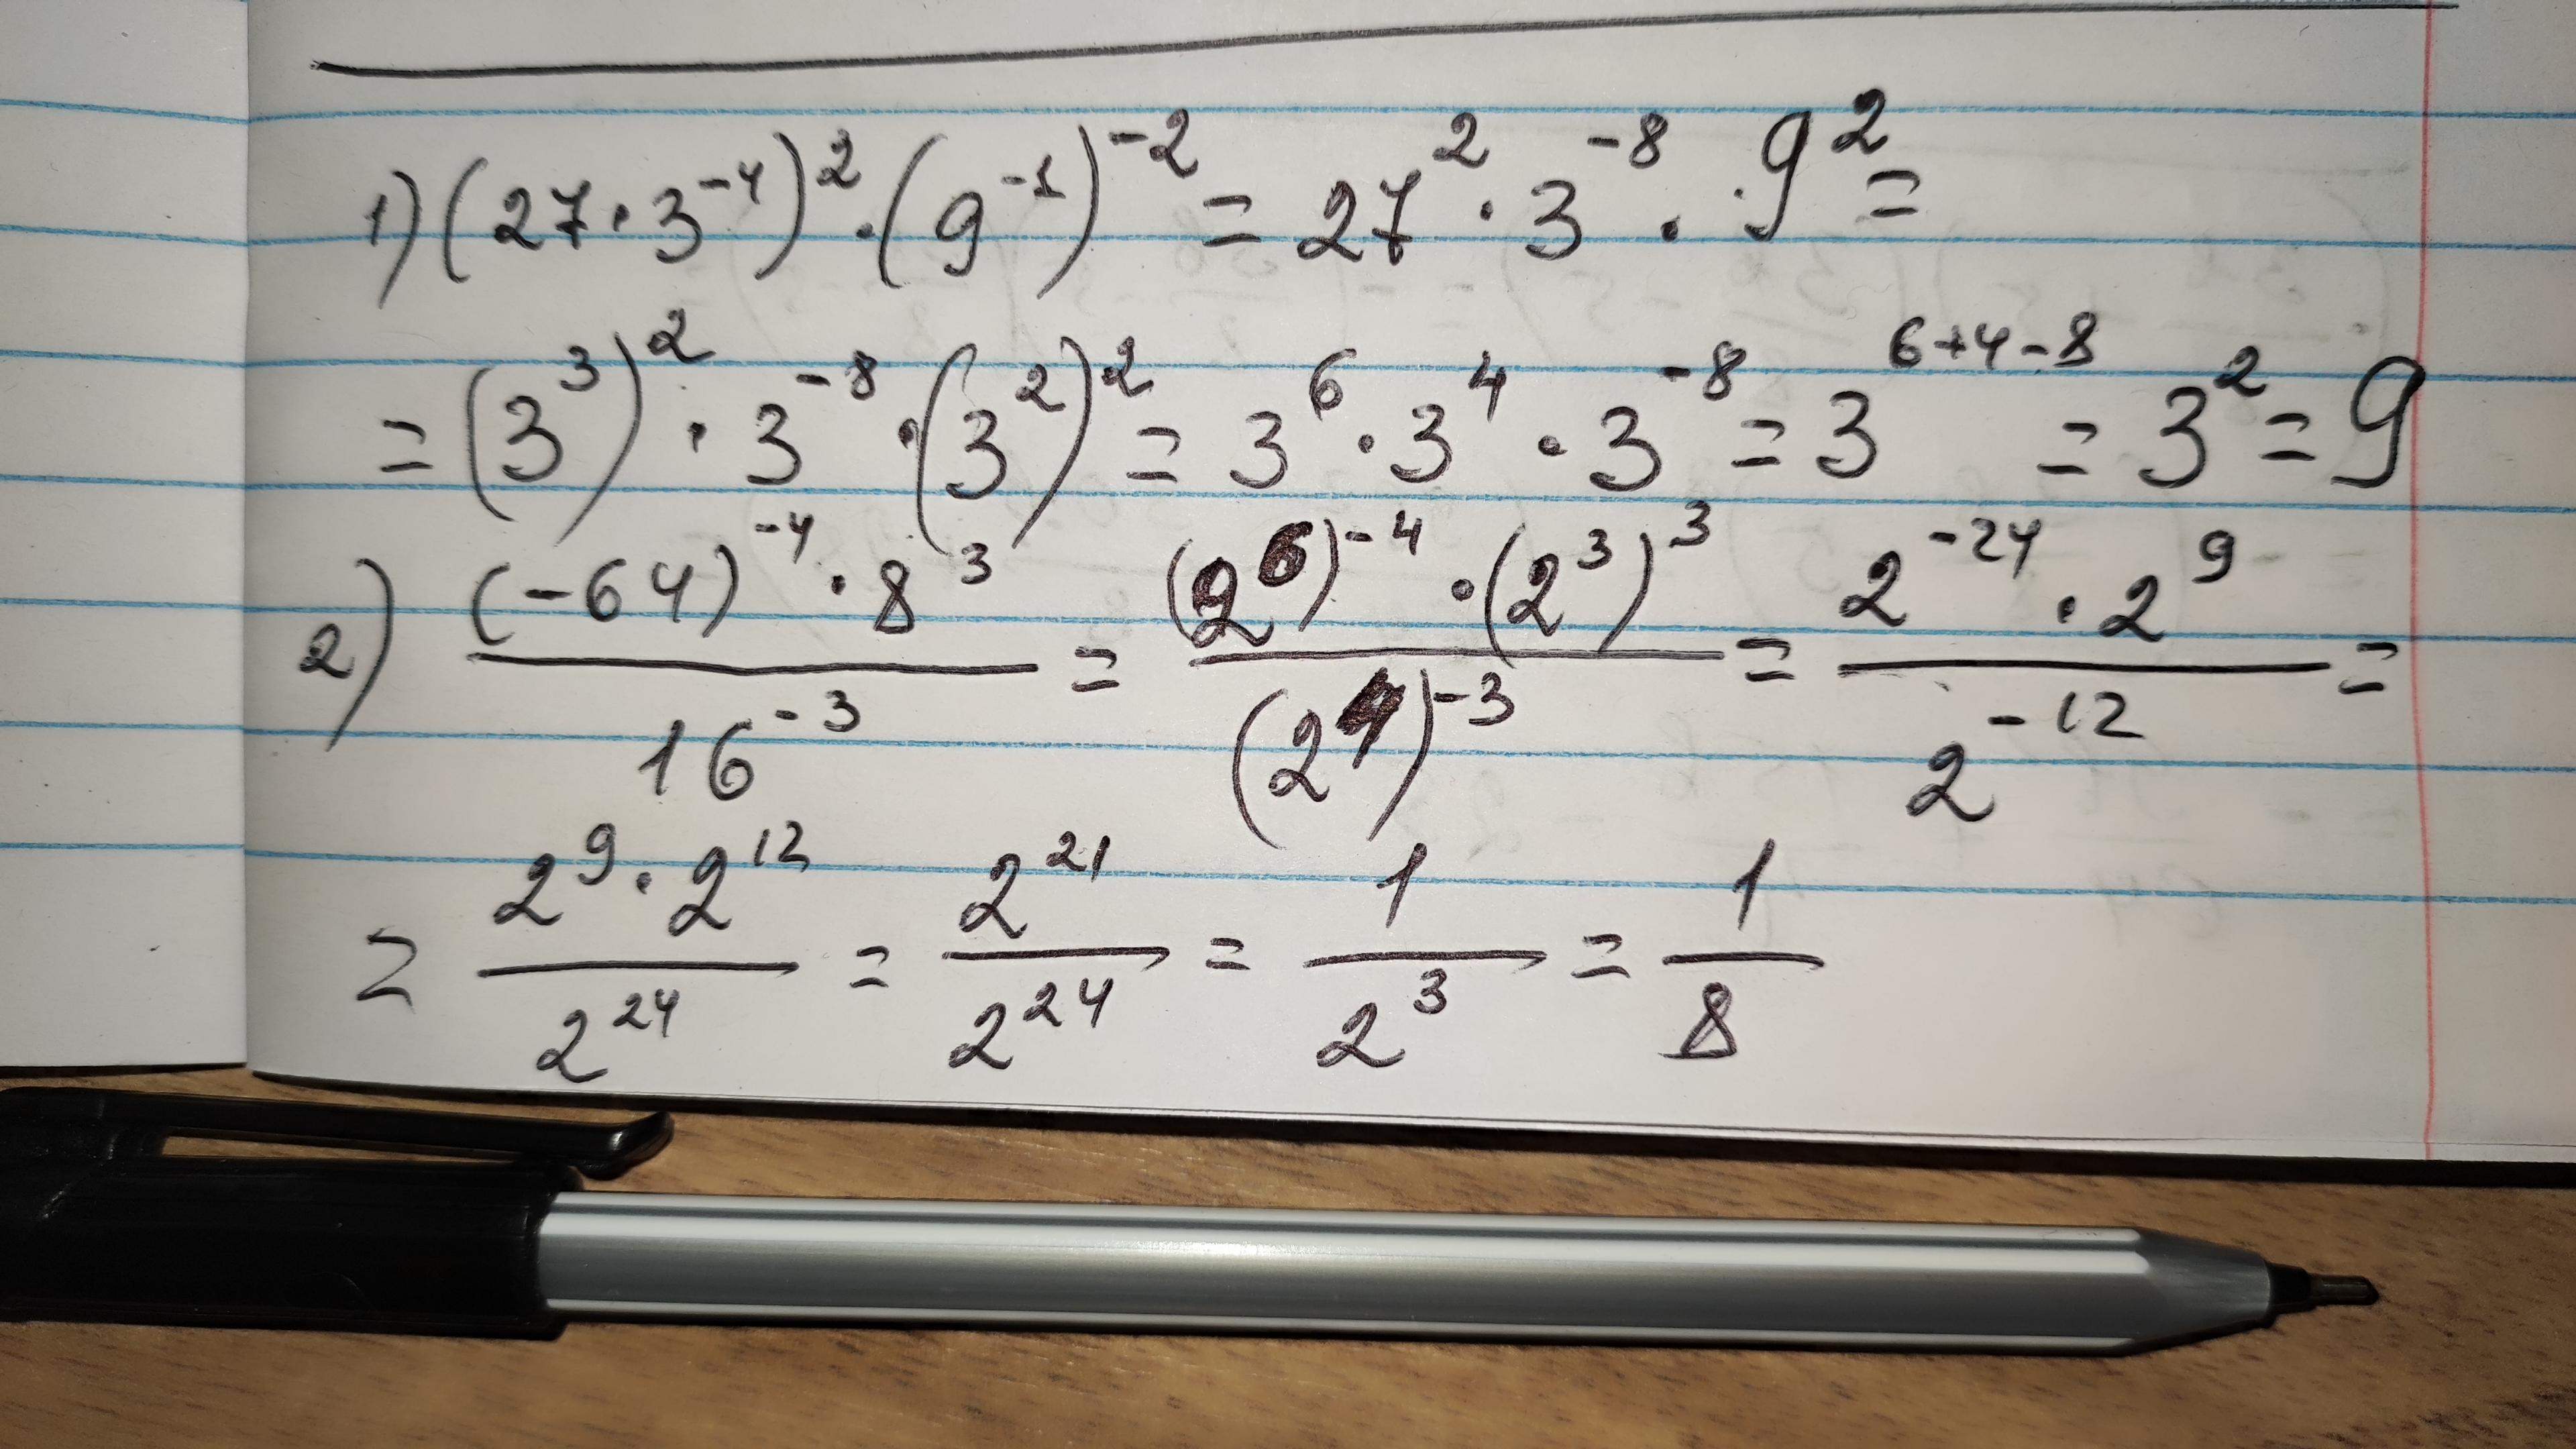 1) (27·3⁻⁴)²·(9⁻¹)⁻² = 27²·3⁻⁸·9² =
= (3³)²·3⁻⁸·(3²)² = 3⁶·3⁴·3⁻⁸ = 3⁶⁺⁴⁻⁸ = 3² = 9
2) ((-64)⁻⁴·8³)/(16⁻³) = ((2⁶)⁻⁴·(2³)³)/((2⁴)⁻³) = (2⁻²⁴·2⁹)/(2⁻¹²) =
= (2⁹·2¹²)/(2²⁴) = 2²¹/2²⁴ = 1/2³ = 1/8